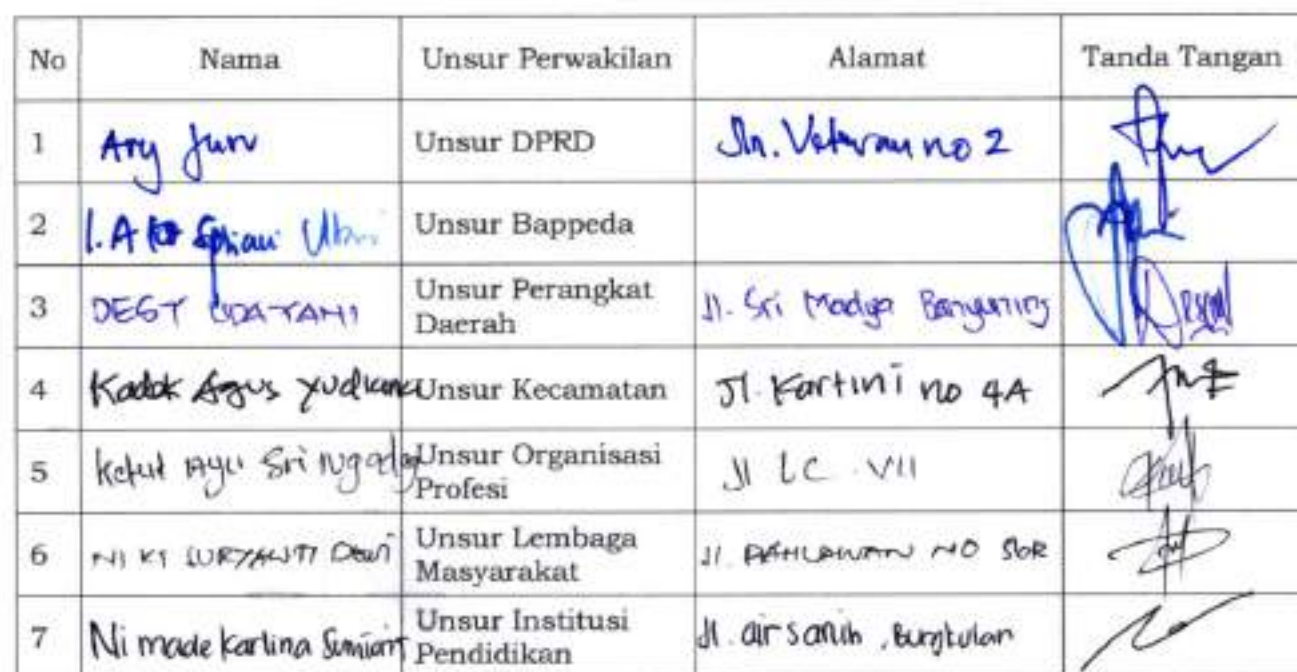 No Nama Unsur Perwakilan Alamat Tanda Tangan
1 Ary Unsur DPRD Jln. Veteran no 2
2 I.A Unsur Bappeda
3 Unsur Perangkat Daerah Jl. Sri Madya Banyuning
4 Kadek Agus Yudiana Unsur Kecamatan Jl. Kartini no 4A
5 Ketut Ayu Sri Unsur Organisasi Profesi Jl LC VII
6 NI KT SURYANTI Dewi Unsur Lembaga Masyarakat Jl. PAHLAWAN NO
7 Ni made Karlina Unsur Institusi Pendidikan Jl. air sanih, Bungkulan